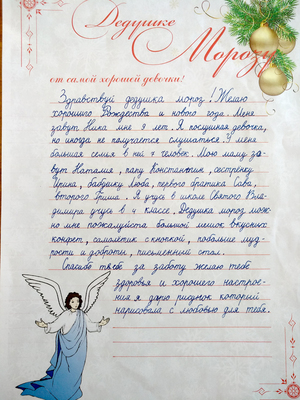 Дедушке
Морозу
от самой хорошей девочки!
Здравствуй дедушка мороз! Желаю
хорошего Рождества и нового года. Меня
завут Ника мне 9 лет. Я послушная девочка,
но иногда не получается слушаться. У меня
большая семья в ней 7 человек. Мою маму за-
вут Наталия, папу Константин, сестрёнку
Ирина, бабушку Люба, первого братика Сава,
второго Гриша. Я учусь в школе Святого Вла-
димера учусь в 4 классе. Дедушка мороз мож-
но мне пожалуйста большой мешок вкусных
конфет, самолётик с кнопкой, побольше муд-
рости и доброты, письменный стол.
Спасибо тебе за заботу желаю тебе
здоровья и хорошего настрое-
ния я дарю рисунок который
нарисовала с любовью для тебя.